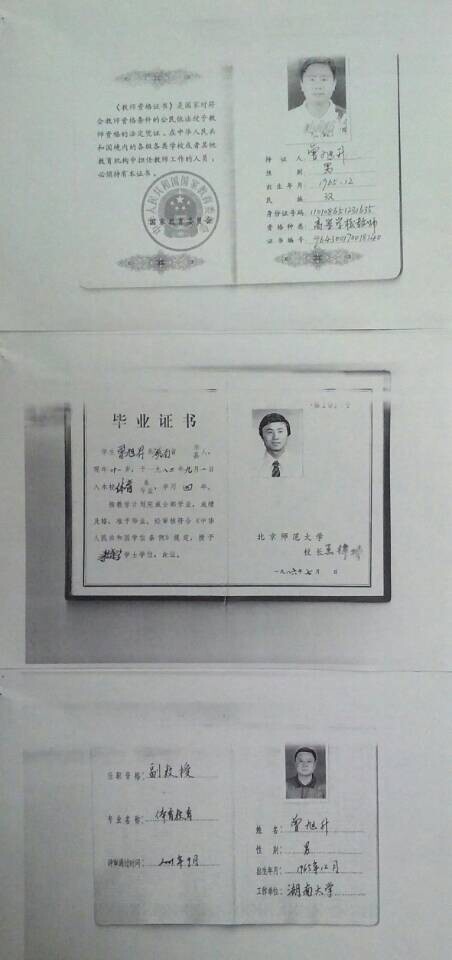 《教师资格证书》是国家对符
合教师资格条件的公民依法授予教
师资格的法定凭证。在中华人民共
和国境内的各级各类学校或者其他
教育机构中担任教师工作的人员,
必须持有本证书。
中华人民共和国国家教育委员会
国家教育委员会
持 证 人: 曾旭升
性 别: 男
出生年月: 1965.12
民 族: 汉
身份证号码: 110108651231635
资格种类: 高等学校教师
证书编号:
毕业证书
学生 曾旭升 系 湖南省 人,
现年 廿一 岁,于一九八二年九月一日
入本校 体育 专业,学习 四 年,
按教学计划完成全部学业,成绩
及格,准予毕业。经审核符合《中华
人民共和国学位条例》规定,授予
学士学位。此证。
北京师范大学
校长 王梓坤
一九八六年七月 日
任职资格: 副教授
专业名称: 体育教育
评审通过时间: 2001年9月
姓 名: 曾旭升
性 别: 男
出生年月: 1965年12月
工作单位: 湖南大学